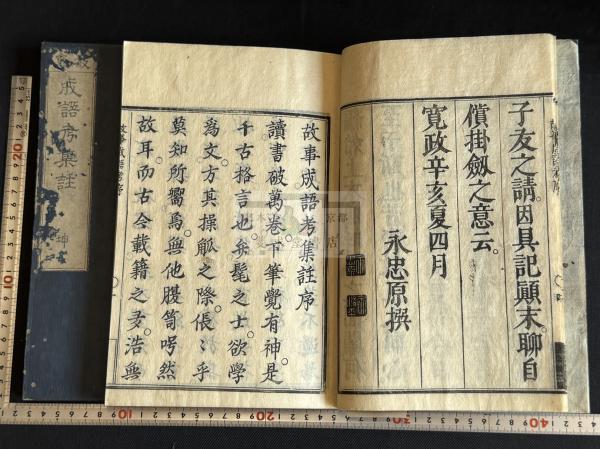 子友之請因具記顛末聊自
償掛劔之意云
寛政辛亥夏四月
永忠原撰
故事成語考集註序
讀書破萬卷下筆覺有神是
千古格言也矣髦之士欲學
爲文方其操觚之際倀〻乎
莫知所嚮焉無他腹笥呺然
故耳而古今載籍之多浩無
成語考集註
坤